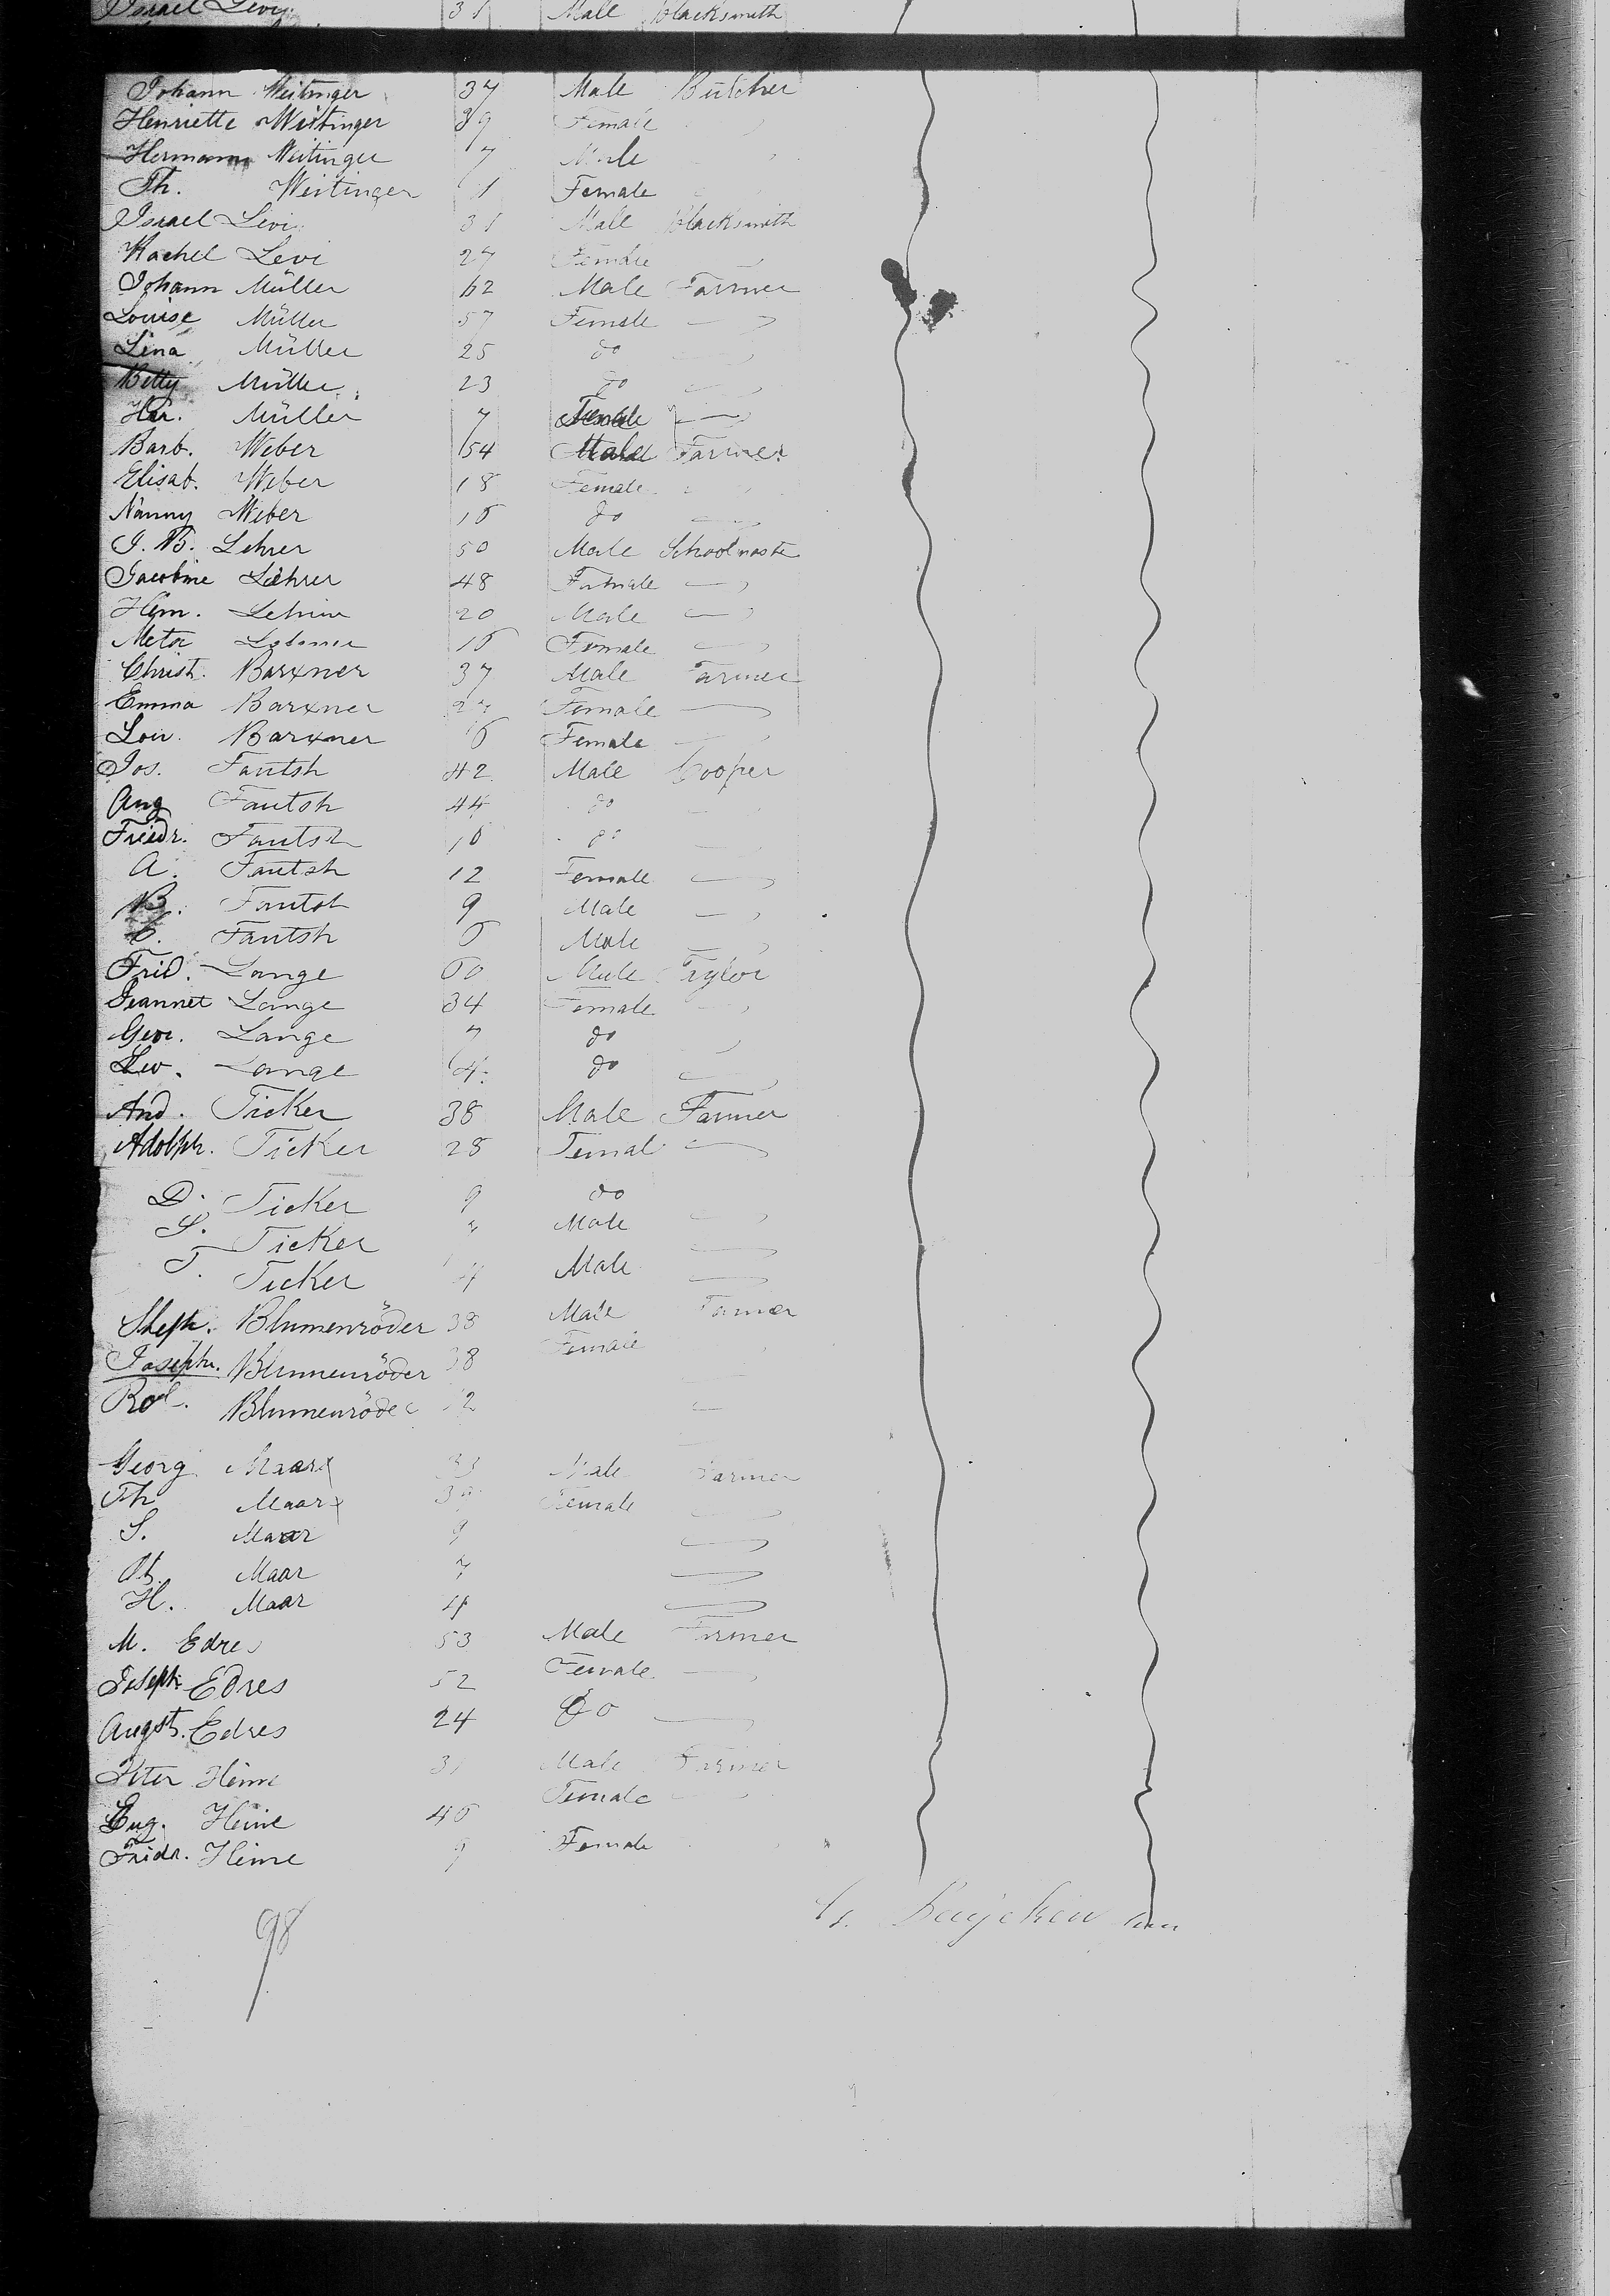 Israel Levi 31 Male Blacksmith
Johann Weitinger 37 Male Butcher
Henriette Weitinger 39 Female
Hermann Weitinger 7 Male
Th. Weitinger 1 Female
Israel Levi 31 Male Blacksmith
Rachel Levi 27 Female
Johann Müller 62 Male Farmer
Louise Müller 57 Female
Lina Müller 25 do
Betty Müller 23 do
Her. Müller 7
Barb. Weber 54 Male Farmer
Elisab. Weber 18 Female
Nanny Weber 16 do
J. B. Lehrer 50 Male Schoolmaste
Jacobine Lehrer 48 Female
Hem. 20 Male
Meta 16 Female
Christ. Barxner 37 Male Farmer
Emma Barxner 27 Female
Lou. Barxner 6 Female
Jos. Fautsh 42 Male Cooper
Aug Fautsh 44 do
Friedr. Fautsh 16 do
A. Fautsh 12 Female
B. Fautsh 9 Male
C. Fautsh 6 Male
Frid. Lange 60 Male Taylor
Jeannet Lange 34 Female
Geor. Lange 7 do
Leo. Lange 4 do
And. Ticker 38 Male Farmer
Adolph. Ticker 28 Femal
D. Ticker 9 do
S. Ticker 7 Male
T. Ticker 4 Male
Steph. Blumenröder 38 Male Farmer
Josephe. Blumenröder 38 Female
Rod. Blumenröder 12
Georg Maar 33 Male Farmer
Th Maar Female
S. Maar 9
Maar 7
H. Maar 4
M. Edres 53 Male Farmer
Joseph Edres 52 Female
Augst. Edres 24 do
Peter Heine Male Farmer
Eug. Heine 46 Female
Fridr. Heine 9 Female
98